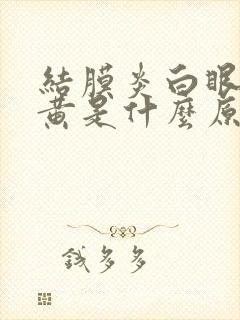 結膜炎白眼
黃是什麼原
錢多多